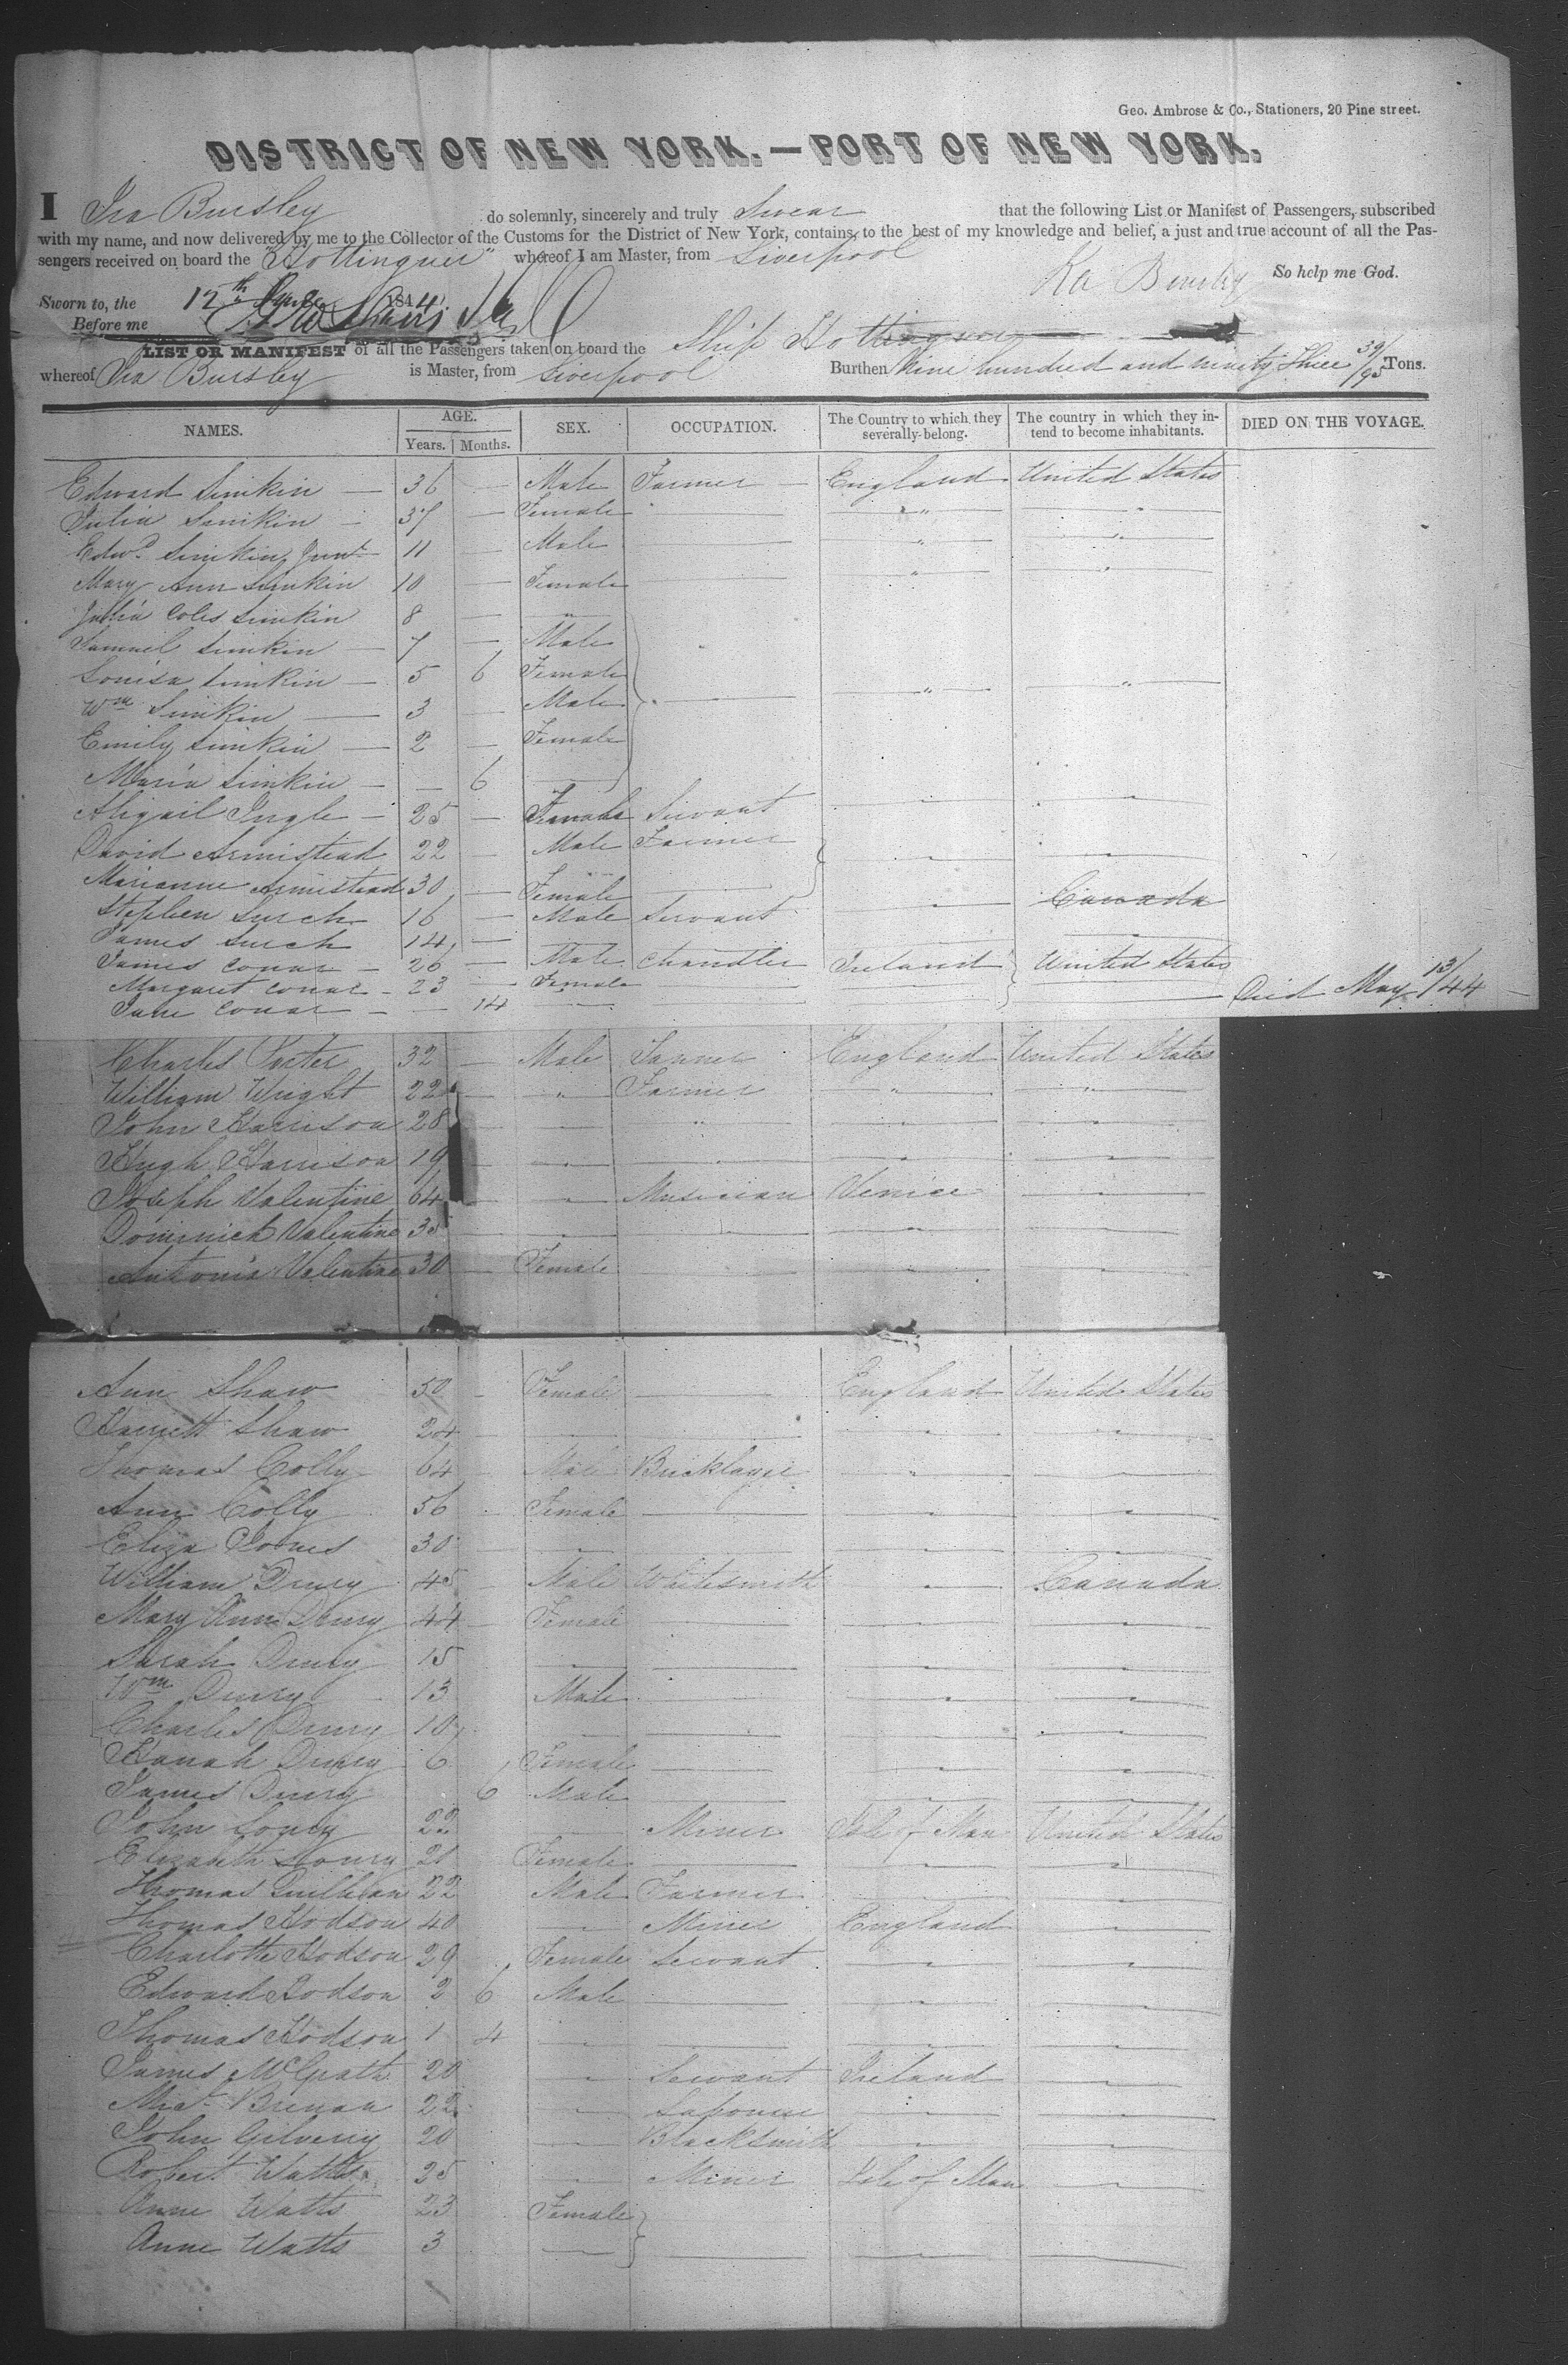 Geo. Ambrose & Co., Stationers, 20 Pine street.
DISTRICT OF NEW YORK.—PORT OF NEW YORK.
I Ira Bursley do solemnly, sincerely and truly Swear that the following List or Manifest of Passengers, subscribed
with my name, and now delivered by me to the Collector of the Customs for the District of New York, contains, to the best of my knowledge and belief, a just and true account of all the Pas-
sengers received on board the "Hottinguer" whereof I am Master, from Liverpool
Ira Bursley So help me God.
Sworn to, the 12th June 1844
Before me
LIST OR MANIFEST of all the Passengers taken on board the Ship Hottinguer
whereof Ira Bursley is Master, from Liverpool Burthen Nine hundred and ninety three 39/95 Tons.
NAMES. AGE. Years. Months. SEX. OCCUPATION. The Country to which they severally belong. The country in which they in-tend to become inhabitants. DIED ON THE VOYAGE.
Edward Simkin — 36 — Male Farmer — England United States
Julia Simkin — 37 — Female — " — "
Edwd Simkin, Junr 11 — Male — " — "
Mary Ann Simkin 10 — Female " — "
Julia Coles Simkin 8 — "
Samuel Simkin — 7 — Male
Louisa Simkin — 5 6 Female
Wm Simkin — 3 — Male — " — "
Emily Simkin — 2 — Female
Maria Simkin — — 6 —
Abigail Ingle — 25 — Female Servant — " — "
David Armistead 22 — Male Farmer — " — "
Marianne Armistead 30 — Female —
Stephen Surch 16 — Male Servant — " Canada
James Surch 14 — —
James Conar — 26 — Male Chandler Ireland United States
Margaret Conar — 23 — Female — — —
Jane Conar — — 14 — — — — Died May 13/44
Charles Porter 32 — Male Tanner England United States
William Wright 22 — " Farmer — " — "
John Harrison 28 — — " — " — "
Hugh Harrison 19 — — " — — " — "
Joseph Valentine 64 — — " Musician Venice — "
Dominick Valentine 35 — — " — — " — "
Antonia Valentine 30 — Female — — " — "
Ann Shaw 50 - Female — England United States
Harriett Shaw 24 — " — — " — "
Thomas Colly 64 - Male Bricklayer — " — "
Ann Colly 56 - Female — — " — "
Eliza Toomes 30 - — " — — " — "
William Drury 45 - Male Whitesmith — " Canada
Mary Ann Drury 44 - Female — — " — "
Sarah Drury 15 — " — — " — "
Wm Drury 13 Male — — " — "
Charles Drury 10 — — — " — "
Hanah Drury 6 Female — — " — "
James Drury 6 Male — — " — "
John 22 — Miner Isle of Man United States
Elizabeth 21 Female — — " — "
Thomas Quillian 22 Male Farmer — " — "
Thomas Hodson 40 — " Miner England — "
Charlotte Hodson 29 Female Servant — " — "
Edward Hodson 2 6 Male — — " — "
Thomas Hodson 1 4 — " — — " — "
James McGrath 20 — " Servant Ireland — "
Micl Brenan 22 — " Labourer — " — "
John Gilvery 20 — " Blacksmith — " — "
Robert Watts 25 — " Miner Isle of Man — "
Anne Watts 23 Female
Anne Watts 3 — — — " — "